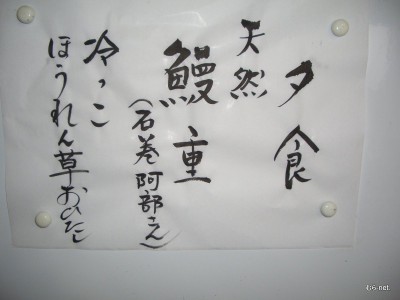 夕食
天然
鰻重
(石巻阿部さん)
冷っこ
ほうれん草おひたし
むら.net